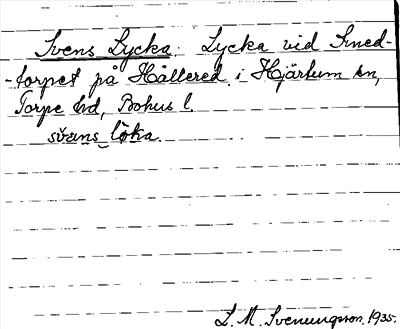 Svens Lycka. Lycka vid Smed-
-torpet på Hållered i Hjärtum sn,
Torpe hd, Bohus l.
svæns löka.
L. M. Svenungsson. 1935.